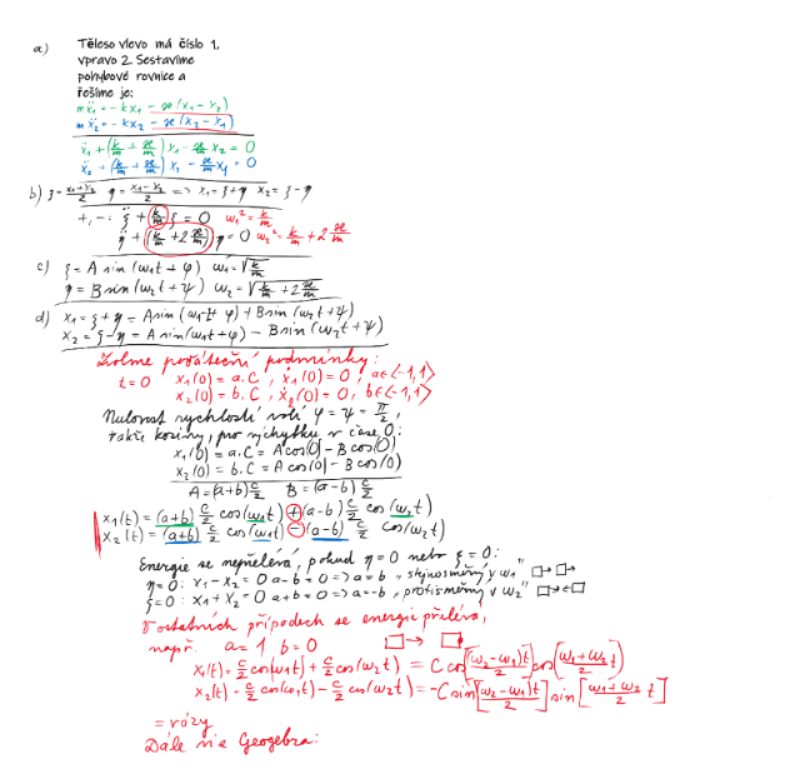 a) Těleso vlevo má číslo 1,
vpravo 2. Sestavíme
pohybové rovnice a
řešíme je:
mẍ₁ = - kx₁ - æ(x₁ - x₂)
mẍ₂ = - kx₂ - æ(x₂ - x₁)
ẍ₁ + (k/m + æ/m) x₁ - æ/m x₂ = 0
ẍ₂ + (k/m + æ/m) x₂ - æ/m x₁ = 0
b) ξ = (x₁+x₂)/2 η = (x₁-x₂)/2 => x₁ = ξ + η x₂ = ξ - η
+, - : ξ̈ + (k/m) ξ = 0 ω₁² = k/m
η̈ + (k/m + 2æ/m) η = 0 ω₂² = k/m + 2 æ/m
c) ξ = A sin (ω₁t + φ) ω₁ = √(k/m)
η = B sin (ω₂t + ψ) ω₂ = √(k/m + 2æ/m)
d) x₁ = ξ + η = A sin (ω₁t + φ) + B sin (ω₂t + ψ)
x₂ = ξ - η = A sin (ω₁t + φ) - B sin (ω₂t + ψ)
Zolme počáteční podmínky:
t = 0 x₁(0) = a.C , ẋ₁(0) = 0 , a∈<-1,1>
x₂(0) = b.C , ẋ₂(0) = 0, b∈<-1,1>
Nulovost rychlostí volí φ = ψ = π/2,
takže kosiny, pro výchylku v čase 0:
x₁(0) = a.C = A cos(0) - B cos(0)
x₂(0) = b.C = A cos(0) - B cos(0)
A = (a+b) c/2 B = (a-b) c/2
x₁(t) = (a+b) c/2 cos(ω₁t) + (a-b) c/2 cos(ω₂t)
x₂(t) = (a+b) c/2 cos(ω₁t) - (a-b) c/2 cos(ω₂t)
Energie se nepřelévá, pokud η = 0 nebo ξ = 0:
η = 0: x₁ - x₂ = 0 a - b = 0 => a = b „ stejnosměrný v ω₁"
ξ = 0: x₁ + x₂ = 0 a + b = 0 => a = -b „ protisměrný v ω₂"
V ostatních případech se energie přelévá,
např. a = 1 b = 0
x₁(t) = c/2 cos(ω₁t) + c/2 cos(ω₂t) = C cos[(ω₂-ω₁)t/2] cos[(ω₁+ω₂)/2 t]
x₂(t) = c/2 cos(ω₁t) - c/2 cos(ω₂t) = -C sin[(ω₂-ω₁)t/2] sin[(ω₁+ω₂)/2 t]
= rázy
Dále viz Geogebra: